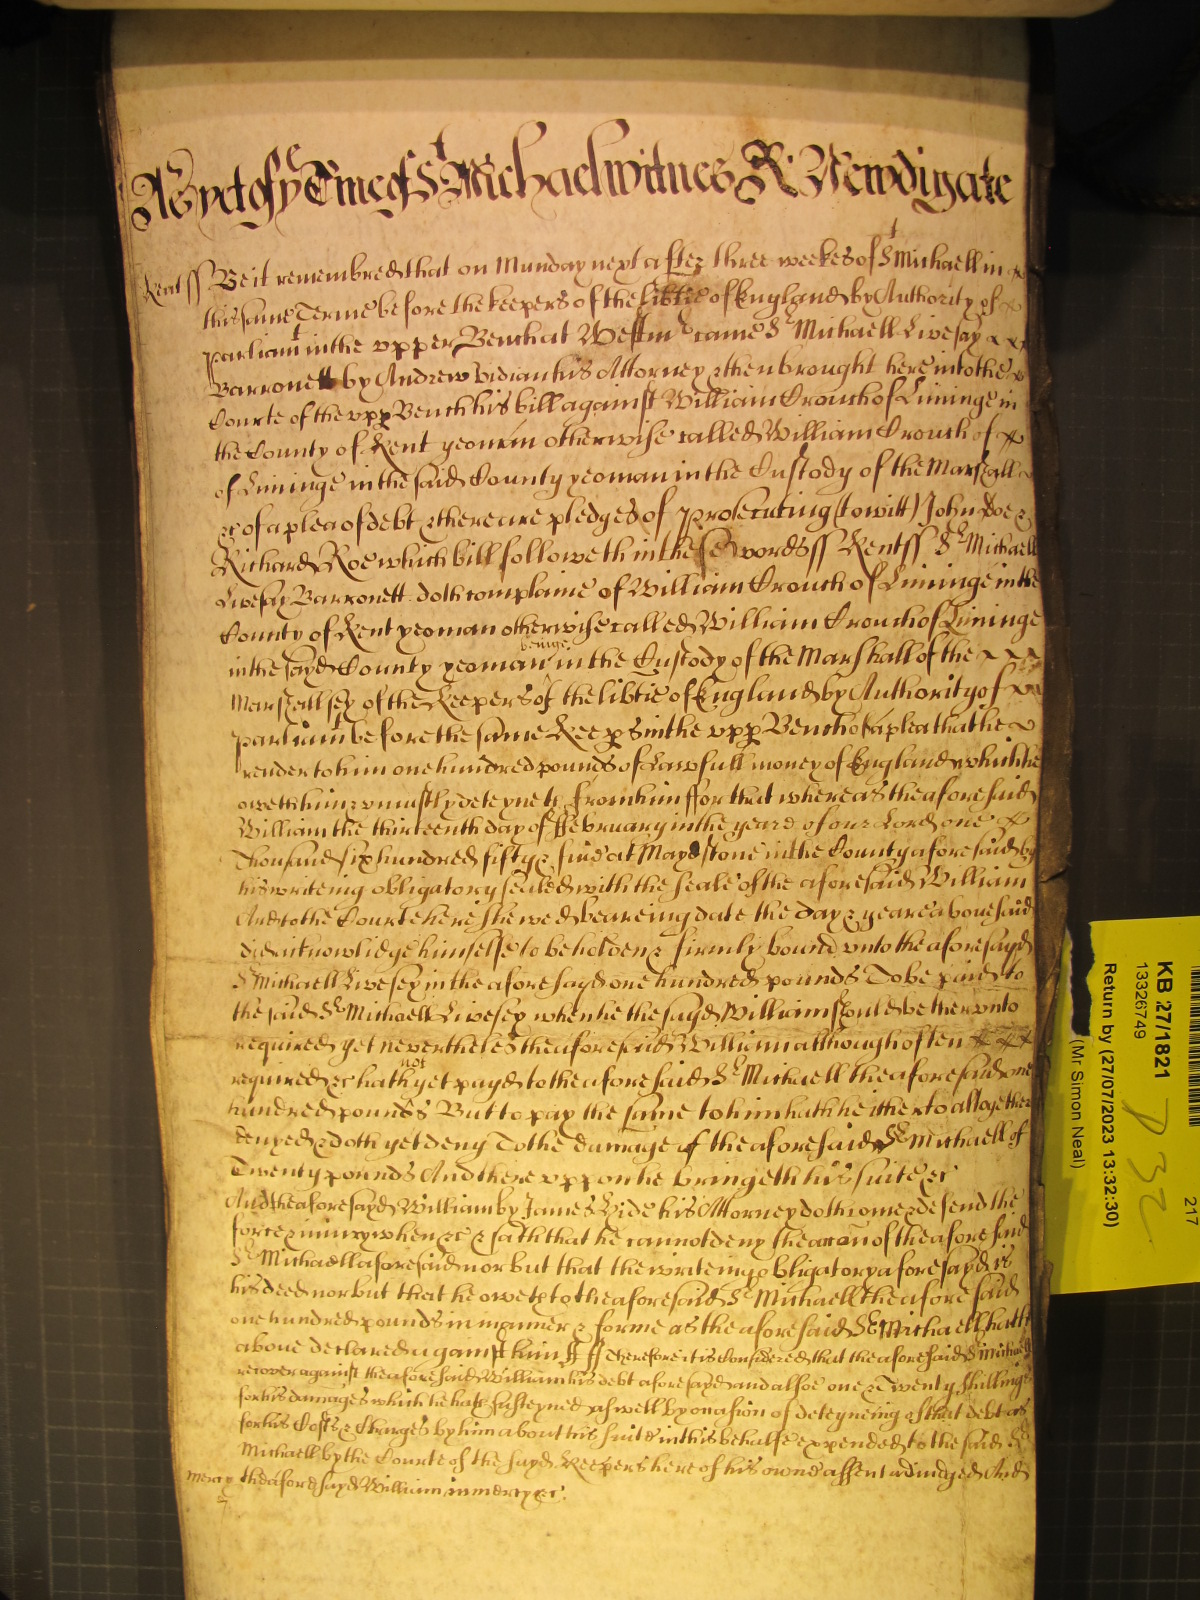 As yet of ye Tme of St Michael witnes R: Newdigate
Kent ss Be it remembred that on Munday next after three weekes of St Michaell in
this same Terme before the keepers of the libtie of England by Authority of
parliamt in the upper Bench at Westmr came Sr Michaell Livesay
Barronett by Andrew Vidian his Attorney & then brought here into the
Courte of the upp Bench his bill against William Crouch of Liminge in
the County of Kent yeoman otherwise called William Crouch of
of Liminge in the said County yeoman in the Custody of the Marshall
&c of a plea of debt & there are pledges of prosecuting (to witt) John Doe &
Richard Roe which bill followeth in these words ss Kent ss Sr Michaell
Livesey Barronett doth complaine of William Crouch of Liminge in the
County of Kent yeoman otherwise called William Crouch of Liminge
in the sayd County yeoman beinge in the Custody of the Marshall of the
Marshallsey of the Keepers of the libtie of England by Authority of
parliamt before the same Keeps in the upp Bench of a plea that he
render to him one hundred pounds of Lawfull money of England which he
oweth him & uniustly deteyneth from him ffor that whereas the aforesaid
William the thirteenth day of ffebruary in the yeare of our Lord one
Thousand six hundred fifty & five at Maydstone in the County aforesaid by
his writeing obligatory sealed with the seale of the aforesaid William
And to the Courte here shewed beareing date the day & yeare abovesaid
did acknowledge himselfe to be holden & firmly bound unto the aforesayd
Sr Michaell Livesey in the aforesayd one hundred pounds To be paid to
the said Sr Michaell Livesey when he the sayd William should be therunto
required yet nevertheles the aforesaid William although often
required &c hath not yet payd to the aforesaid Sr Michaell the aforesaid one
hundred pounds But to pay the same to him hath hitherto altogether
denyed & doth yet deny To the damage of the aforesaid Sr Michaell of
Twenty pounds And thereuppon he bringeth his suite &c
And the aforesayd William by James Hide his Attorney doth come & defend the
force & iniury when &c & saith that he cannot deny the accon of the aforesaid
Sr Michaell aforesaid nor but that the writeing obligatory aforesayd is
his deed nor but that he oweth to the aforesaid Sr Michaell the aforesaid
one hundred pounds in manner & forme as the aforesaid Sr Michaell hath
above declared against him ss Therefore it is Considered that the aforesaid Sr Michaell
recover against the aforesaid William his debt aforesayd and alsoe one & Twenty shillings
for his damages which he hath susteyned as well by occasion of deteyneing of that debt as
for his Costs & Charges by him about his suite in this behalfe expended to the said Sr
Michaell by the Courte of the sayd Keepers here of his owne assent adiudged And
mercy the aforesayd William in mercy &c.
217
KB 27/1821
13326749
D 32
Return by (27/07/2023 13:32:30)
(Mr Simon Neal)